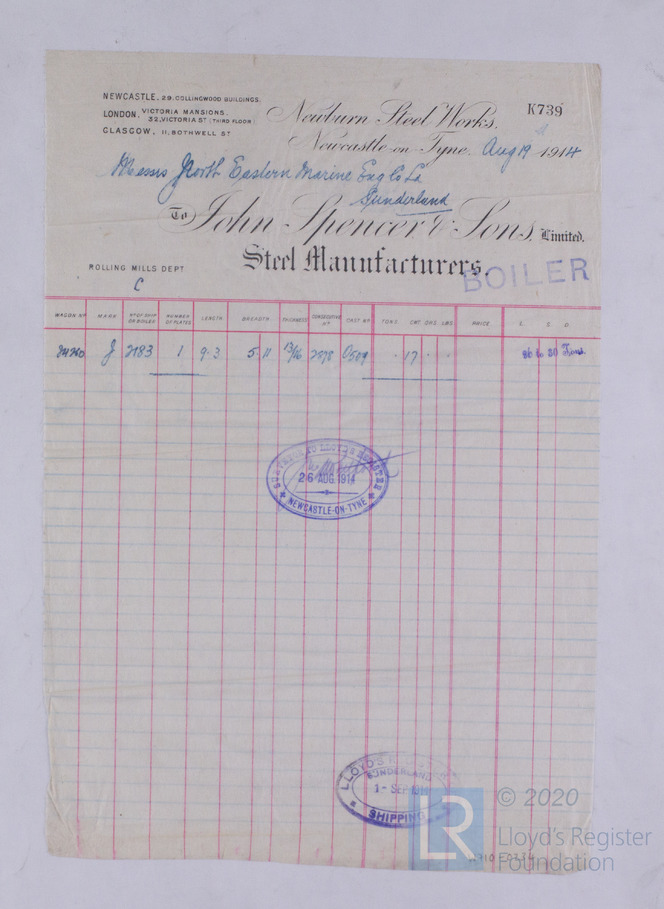 NEWCASTLE. 29. COLLINGWOOD BUILDINGS.
LONDON. VICTORIA MANSIONS, 32, VICTORIA ST (THIRD FLOOR)
GLASGOW, 11, BOTHWELL ST
K739
Newburn Steel Works,
Newcastle-on-Tyne. Aug 19 1914
Messrs North Eastern Marine Eng Co Ld
Sunderland
To John Spencer & Sons, Limited.
Steel Manufacturers.
BOILER
ROLLING MILLS DEPT
C
WAGON No MARK No OF SHIP OR BOILER NUMBER OF PLATES LENGTH BREADTH THICKNESS CONSECUTIVE No CAST No TONS CWT QRS LBS PRICE £ S D
J 2183 1 9·3 5·11 13/16 2278 0509 17 26 to 30 Tons.
26 AUG. 1914
NEWCASTLE-ON-TYNE
LLOYD'S REGISTER
SUNDERLAND
1 - SEP 1914
SHIPPING
LR
© 2020
Lloyd's Register
Foundation